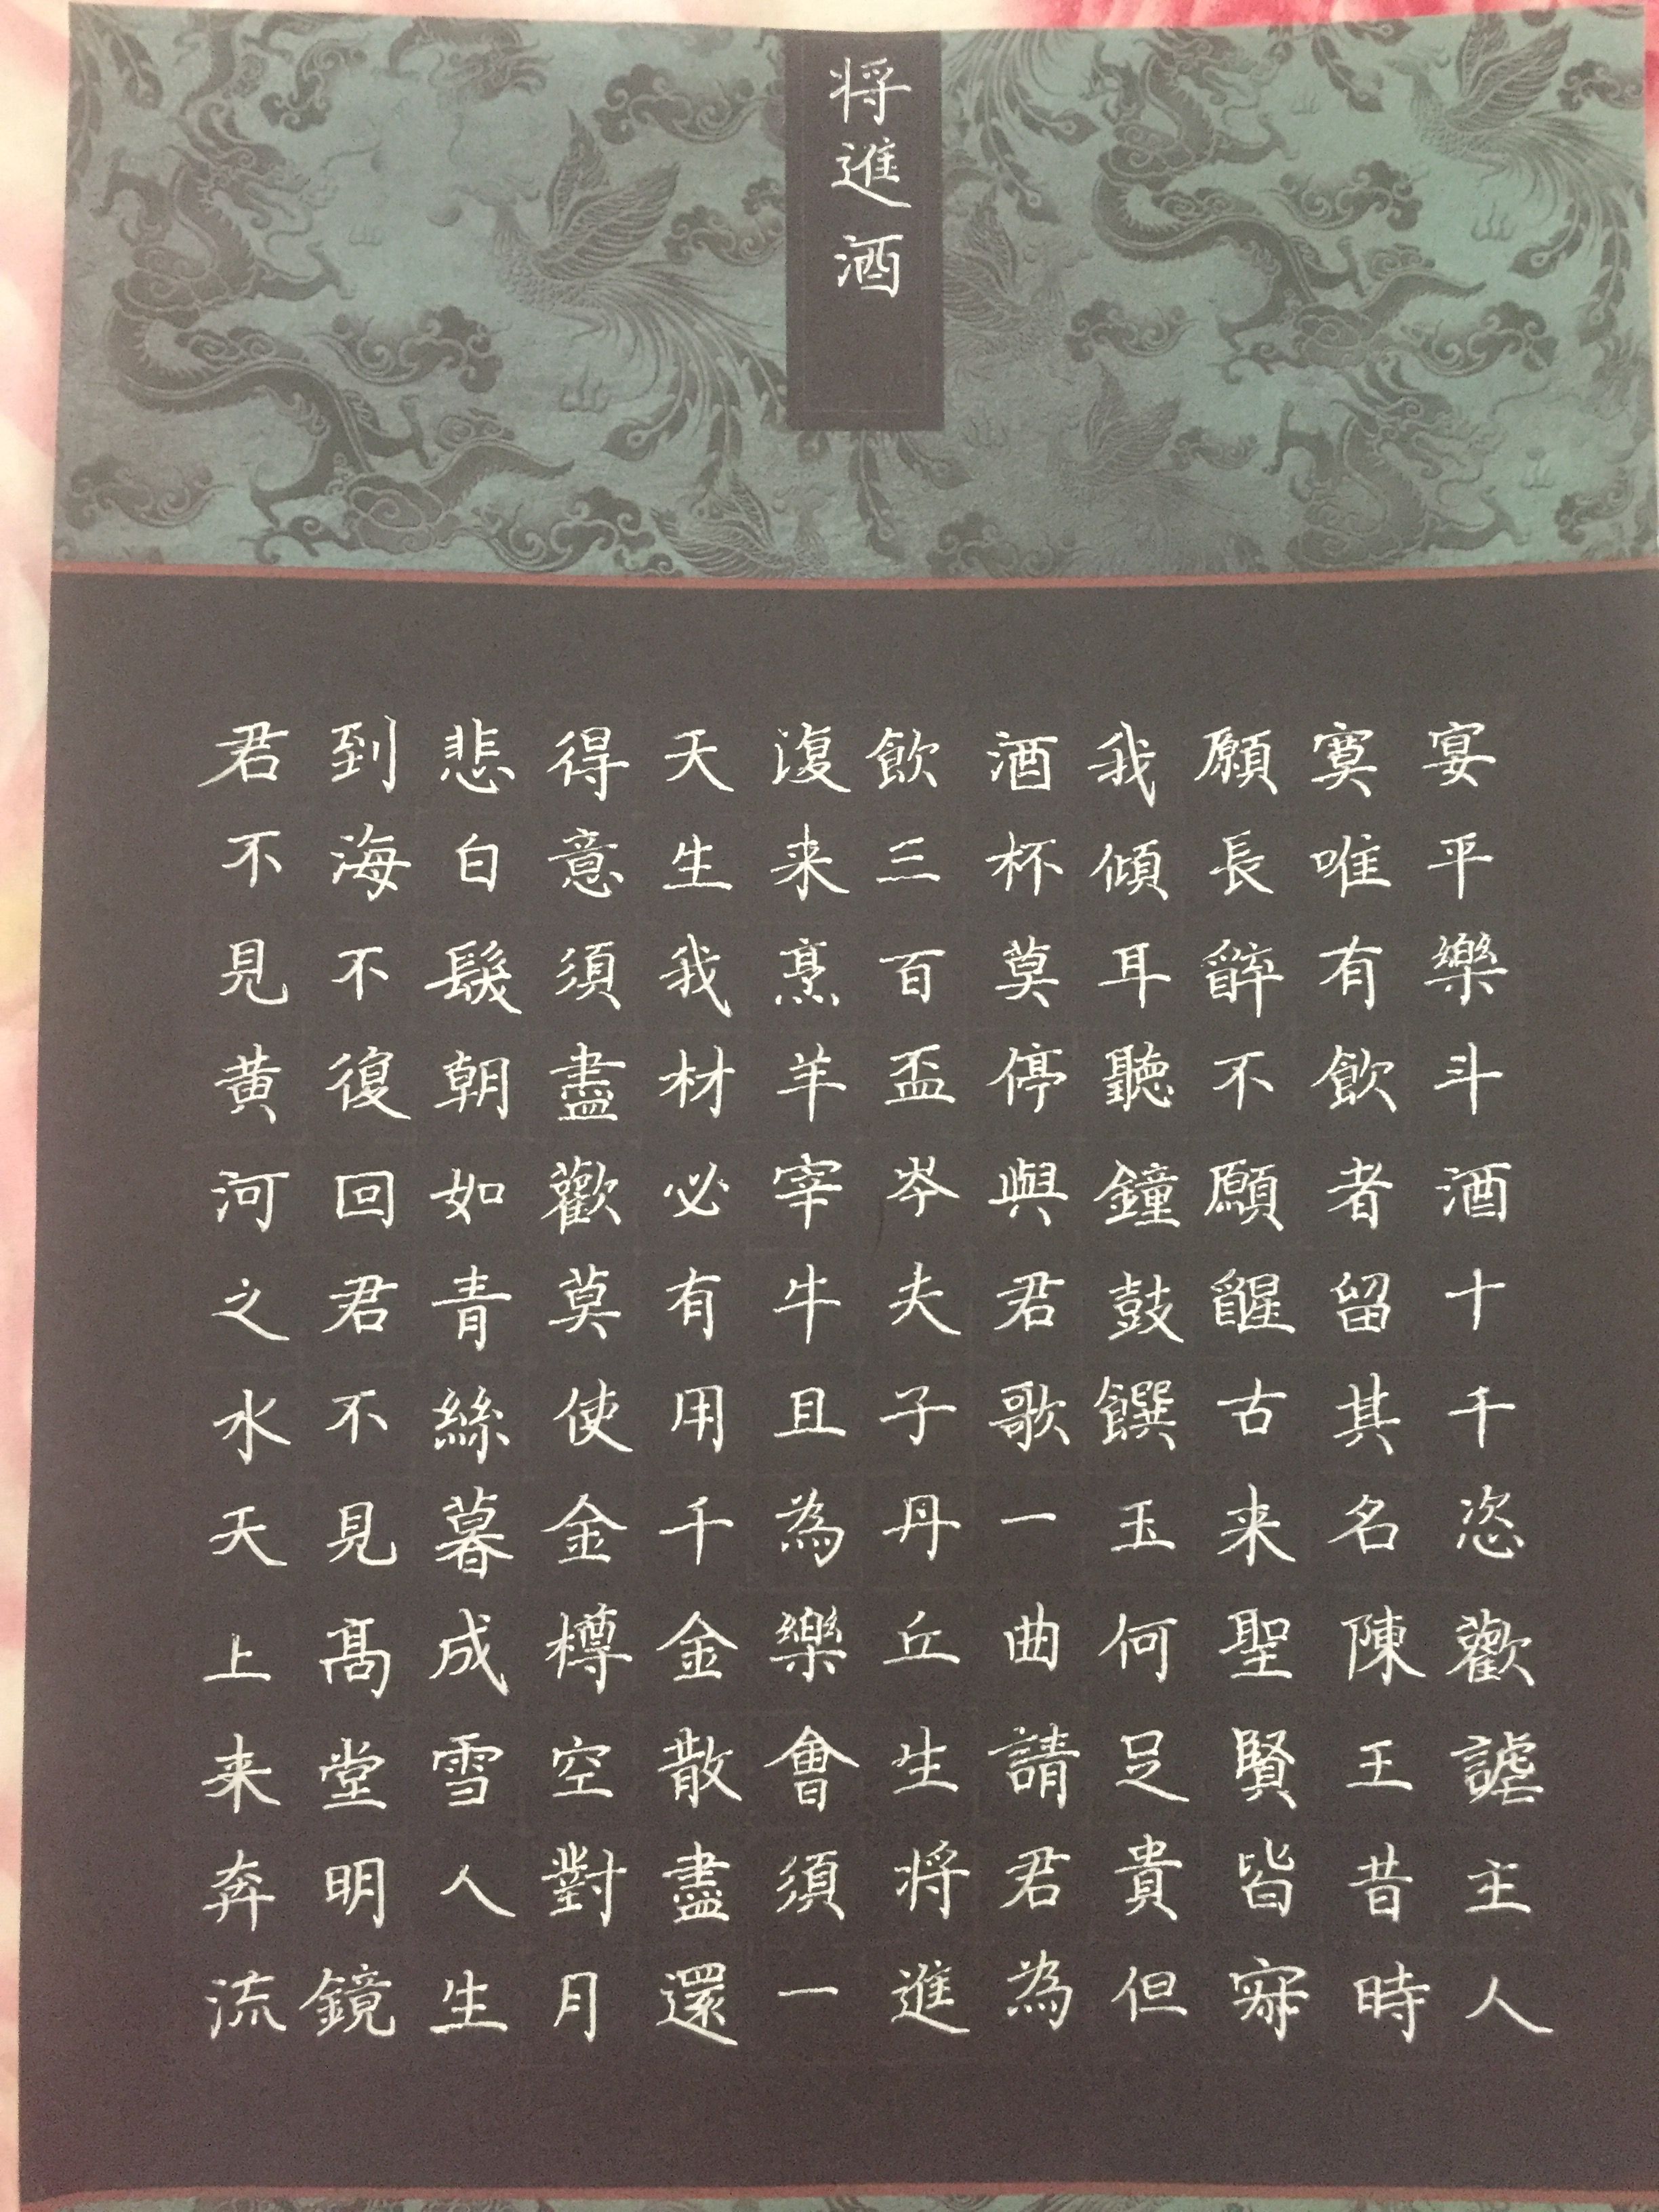 将進酒
君不見黄河之水天上来奔流
到海不復回君不見髙堂明鏡
悲白髮朝如青絲暮成雪人生
得意須盡歡莫使金樽空對月
天生我材必有用千金散盡還
復来烹羊宰牛且為樂會須一
飲三百盃岑夫子丹丘生将進
酒杯莫停與君歌一曲請君為
我傾耳聽鐘鼓饌玉何足貴但
願長醉不願醒古来聖賢皆寂
寞唯有飲者留其名陳王昔時
宴平樂斗酒十千恣歡謔主人